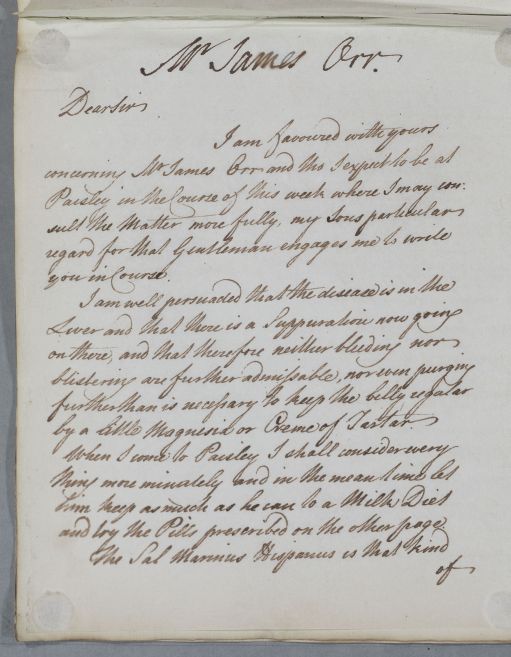 Mr James Orr.
Dear Sir
I am favoured with yours
concerning Mr James Orr and tho I expect to be at
Paisley in the Course of this week where I may con:
sult the Matter more fully, my Sons particular
regard for that Gentleman engages me to write
you in Course.
I am well persuaded that the disease is in the
Liver and that there is a Suppuration now going
on there, and that therefore neither bleeding nor
blistering are further admissable, nor even purging
further than is necessary to keep the belly regular
by a little Magnesia or Creme of Tartar.
When I come to Paisley I shall consider every
thing more minutely and in the mean time let
him keep as much as he can to a Milk Diet
and try the Pills prescribed on the other page
The Sal Marinus Hispanus is that kind
of